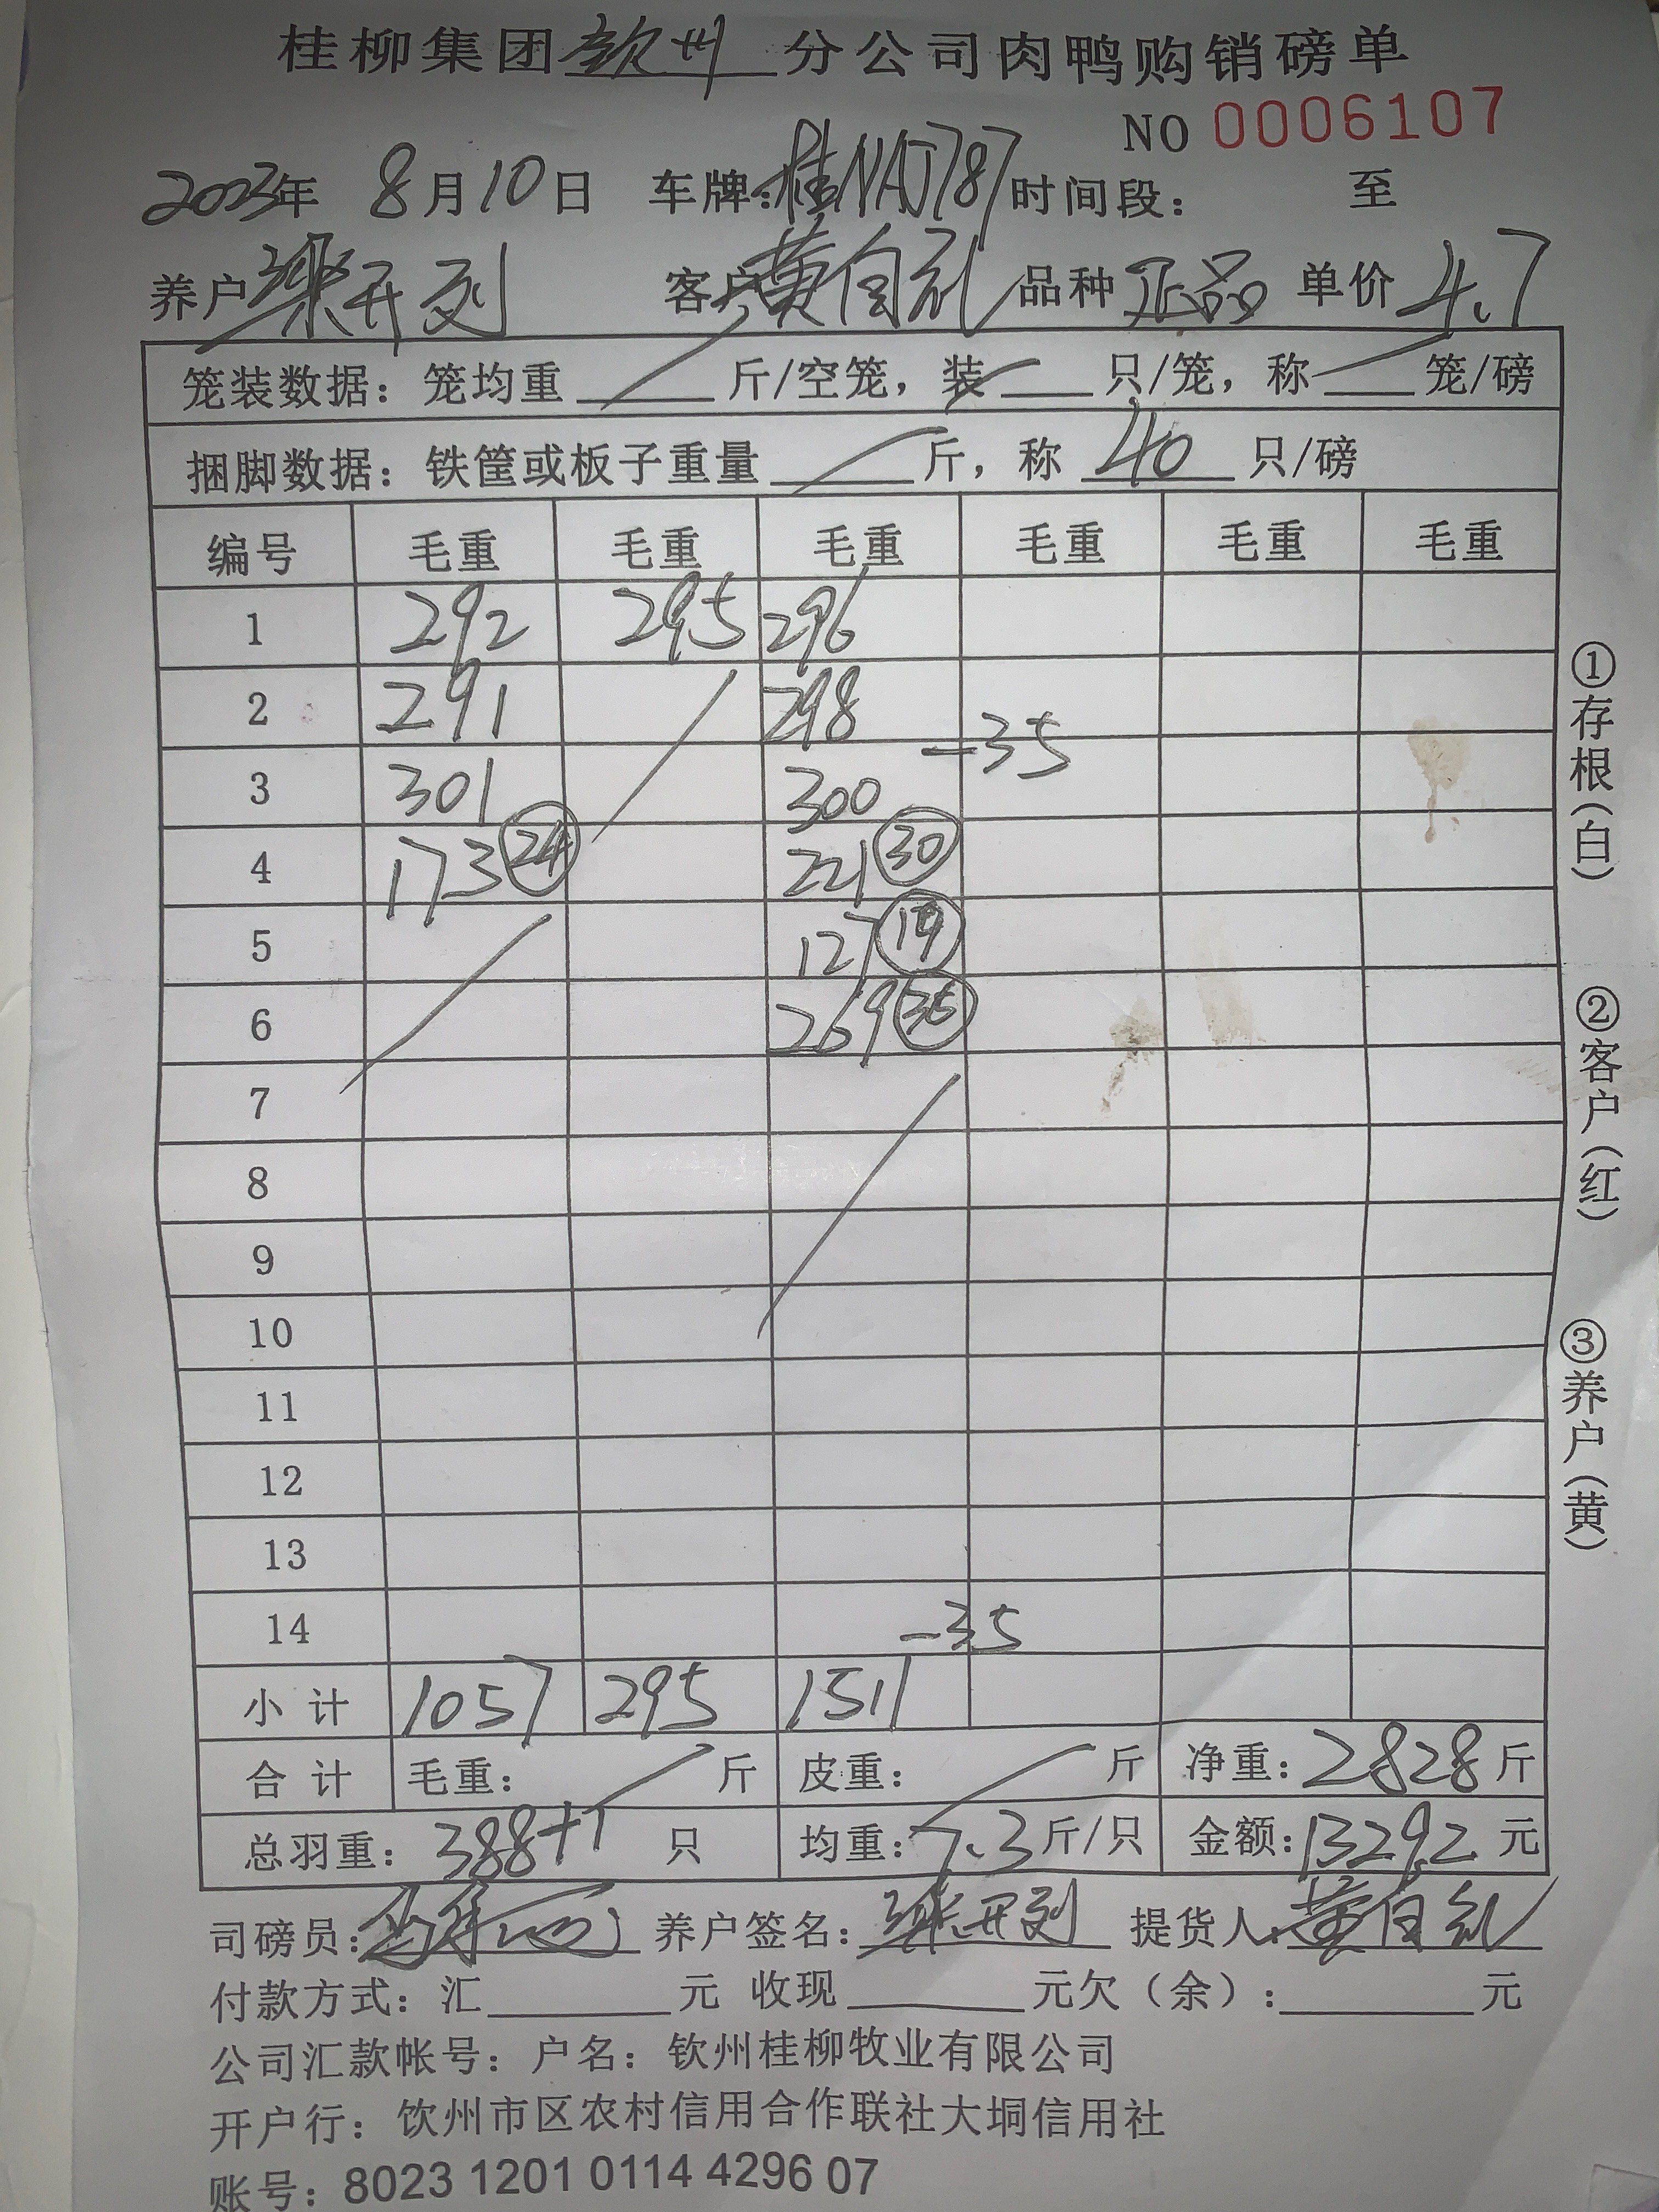 桂柳集团钦州分公司肉鸭购销磅单
NO 0006107
2023年 8月10日 车牌:桂NAJ787 时间段: 至
养户梁开列 客户黄自礼 品种 正品 单价 4.7
笼装数据: 笼均重 斤/空笼, 装 只/笼, 称 笼/磅
捆脚数据: 铁筐或板子重量 斤, 称 40 只/磅
编号 毛重 毛重 毛重 毛重 毛重 毛重
1 292 295 296
2 291 298
-35
3 301 300
4 173 24 221 30
5 127 19
6 269 36
7
8
9
10
11
12
13
14 -35
小计 1057 295 1511
合计 毛重: 斤 皮重: 斤 净重: 2828斤
总羽重: 388+1 只 均重: 7.3斤/只 金额: 13292元
司磅员: 养户签名: 梁开列 提货人: 黄自礼
付款方式: 汇 元 收现 元欠(余): 元
公司汇款帐号: 户名: 钦州桂柳牧业有限公司
开户行: 饮州市区农村信用合作联社大垌信用社
账号: 8023 1201 0114 4296 07
①存根(白)
②客户(红)
③养户(黄)